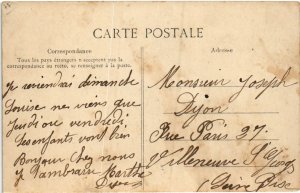 CARTE POSTALE
Correspondance
Tous les pays étrangers n'acceptent pas la
correspondance au recto, se renseigner à la poste.
Adresse
Je reviendrai dimanche
Louise ne viens que
jeudi ou vendredi
Les enfants vont bien
Bonjour chez nous
Marthe
Monsieur Joseph
Dijon
Rue Paris 27
Villeneuve St